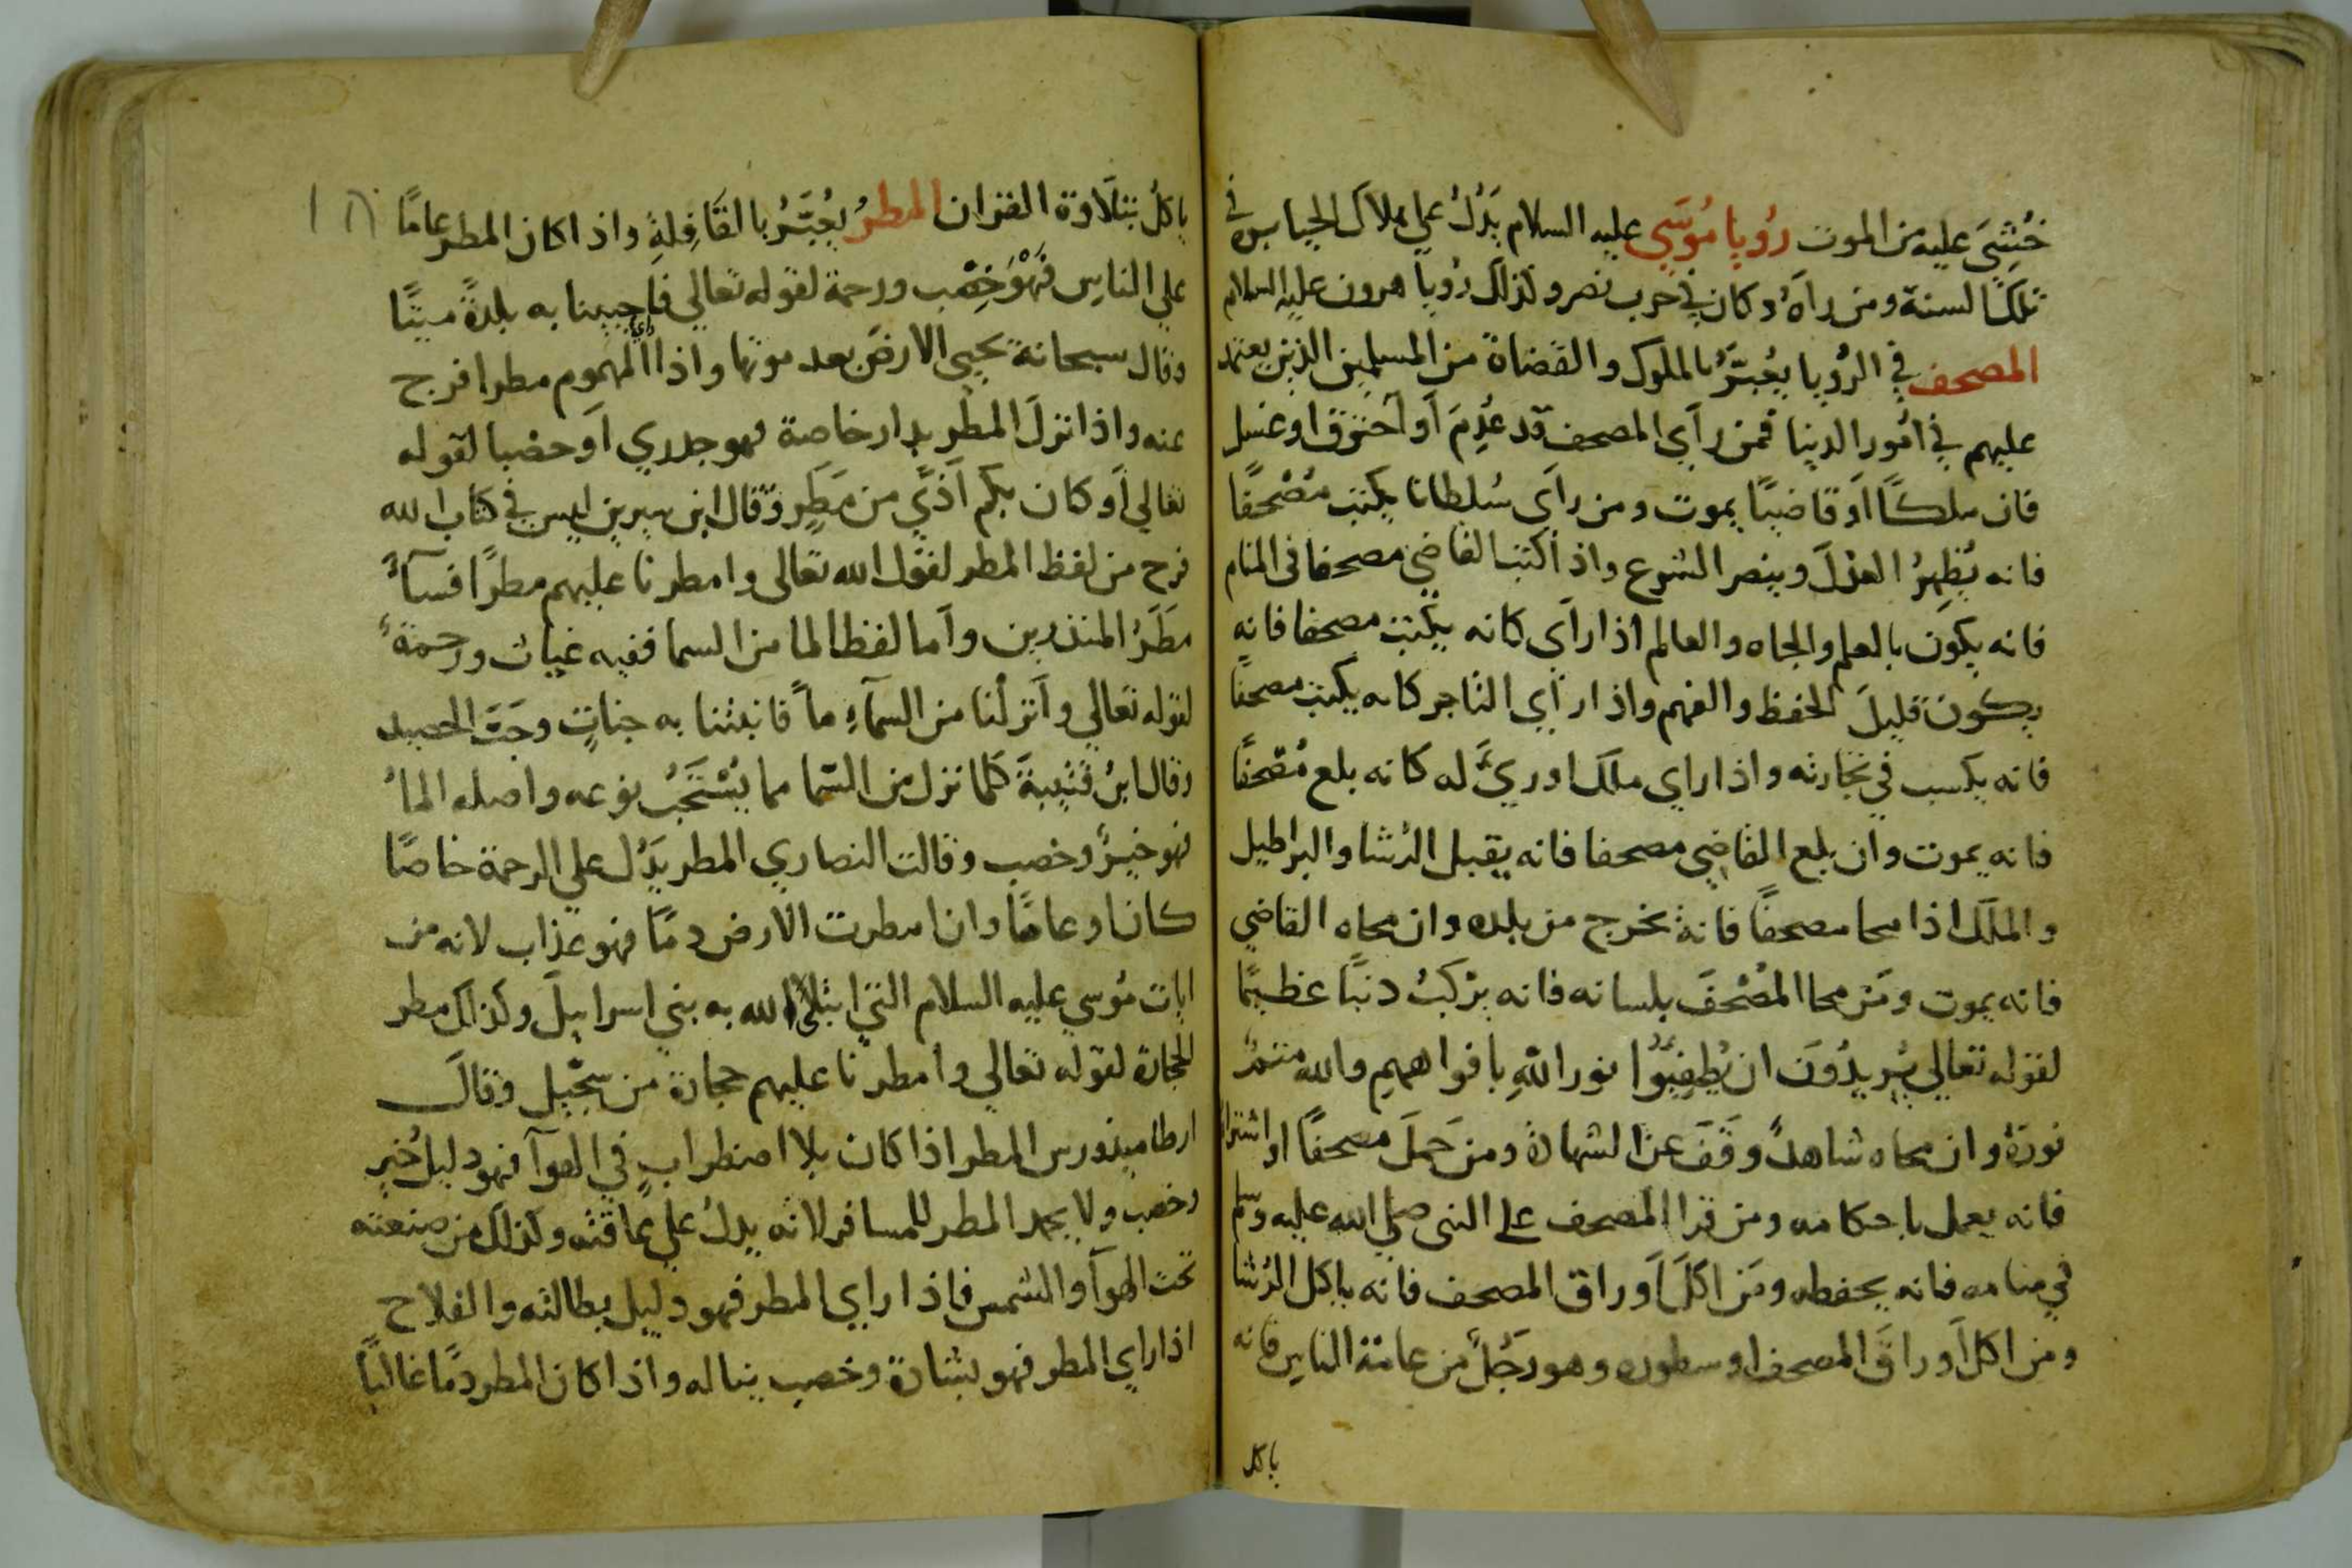 خُشِيَ عليه من الموت رُويا مُوسَي عليه السلام يَدُلُ علي هلاك الجبابره في
تلك السنة ومن راَهُ وكان في حرب نصر وكذلك رُويا هرون عليه السلام
المصحف في الرُويا يُعبَّرُ بالملوك والقضاة من المسلمين الذين يعتمد
عليهم في امُور الدنيا فمن راَي المصحف قد عُدِمَ اَو اَحترق او غسل
فان ملكًا اَو قاضيًا يموت ومن راَي سُلطانا يكتب مُصْحفًا
فانه يُظهِرُ العَدْلَ وينصر الشرع واذا كتب القاضي مصحفا في المنام
فانه يكَون بالعلم والجاه والعالم اذا راَي كانه يكتب مصحفا فانه
يكون قليلَ الحفظ والفهم واذا راَي التاجر كانه يكتب مصحفًا
فانه يكسب في تجارته واذا راي ملك او ريَّ له كانه بلع مُصْحفًا
فانه يموت وان بلع القاضي مصحفا فانه يقبل الرُشا والبراطيل
والملك اذا محا مصحفًا فانهُ يخرج من بلده وان محاه القاضي
فانه يموت ومَن محا المُصْحَفَ بلسانه فانه يرْكَبُ دنبًا عظيمًا
لقوله تعالي يُريدُونَ ان يُطفِيُوا نور اللهِ بافواههمِ والله متمُ
نورهُ وان محاه شاهدً وقَفَ عن الشهادة ومن حَملَ مصحفًا او اشتراه
فانه يعمل باحكامه ومن قرا المصحف على النبي صلي الله عليه وسلم
في منامه فانه يحفظه ومَن اكلَ اَوراق المصحف فانه ياكل الرُشا
ومن اكل اَوراقَ المصحف او سطوره وهو رَجُلً من عامة الناس فانه
ياكل
ياكُل بتلاوة القران المطرُ يُعبَّرُ بالقَافِلةِ واذا كان المطر عامًا
علي الناس فهْوَ خِصْب ورحمة لقوله تعالي فاحيينا به بلدةً ميتًا
وقال سبحانهُ يحيي الارضَ بعد موتها واذا راي المهموم مطرا فرج
عنه واذا نزلَ المطر بدار خاصة فهو جدري اَو حصبا لقوله
تعالي اَو كان بكم اَذًي من مَطَرٍ وقال ابن سيرين ليس في كتاب الله
فرح من لفظ المطر لقول الله تعالى وامطرنا عليهم مطرًا فسآءَ
مطَرُ المنذرين واَما لفظ الما من السما ففيه غياث ورحمةً
لقوله تعالي واَنزلْنا من السمآءِ ماً فانبتنا به جناتٍ وحَبَّ الحصيد
وقال ابنُ قتيبةَ كلما نزل من السّما مما يُسْتَحَبُ نوعه واصله الماُ
فهو خيرٌ وخصب وقالت النصاري المطر يَدُل علي الرحمة خاصًا
كان او عامًا وان امطرت الارض دمًا فهو عذاب لانه من
ايات مُوسي عليه السلام التي ابتلَي الله به بني اسرايلَ وكذلك مطر
الحجارة لقوله تعالي وامطرنا عليهم حجارة من سجّيل وقالَ
ارطاميدورس المطر اذا كان بلا اضطرابٍ في الهوآ فهو دليل خُيرٍ
وخصب ولا يحمد المطر للمسافر لانه يدلُ علي عاقته وكذلك من صنعته
تحت الهوآ والشمس فاذا راي المطر فهو دليل بطالته والفلاح
اذا راي المطر فهو بشارة وخصب يناله واذا كان المطر دمًا غالبًا